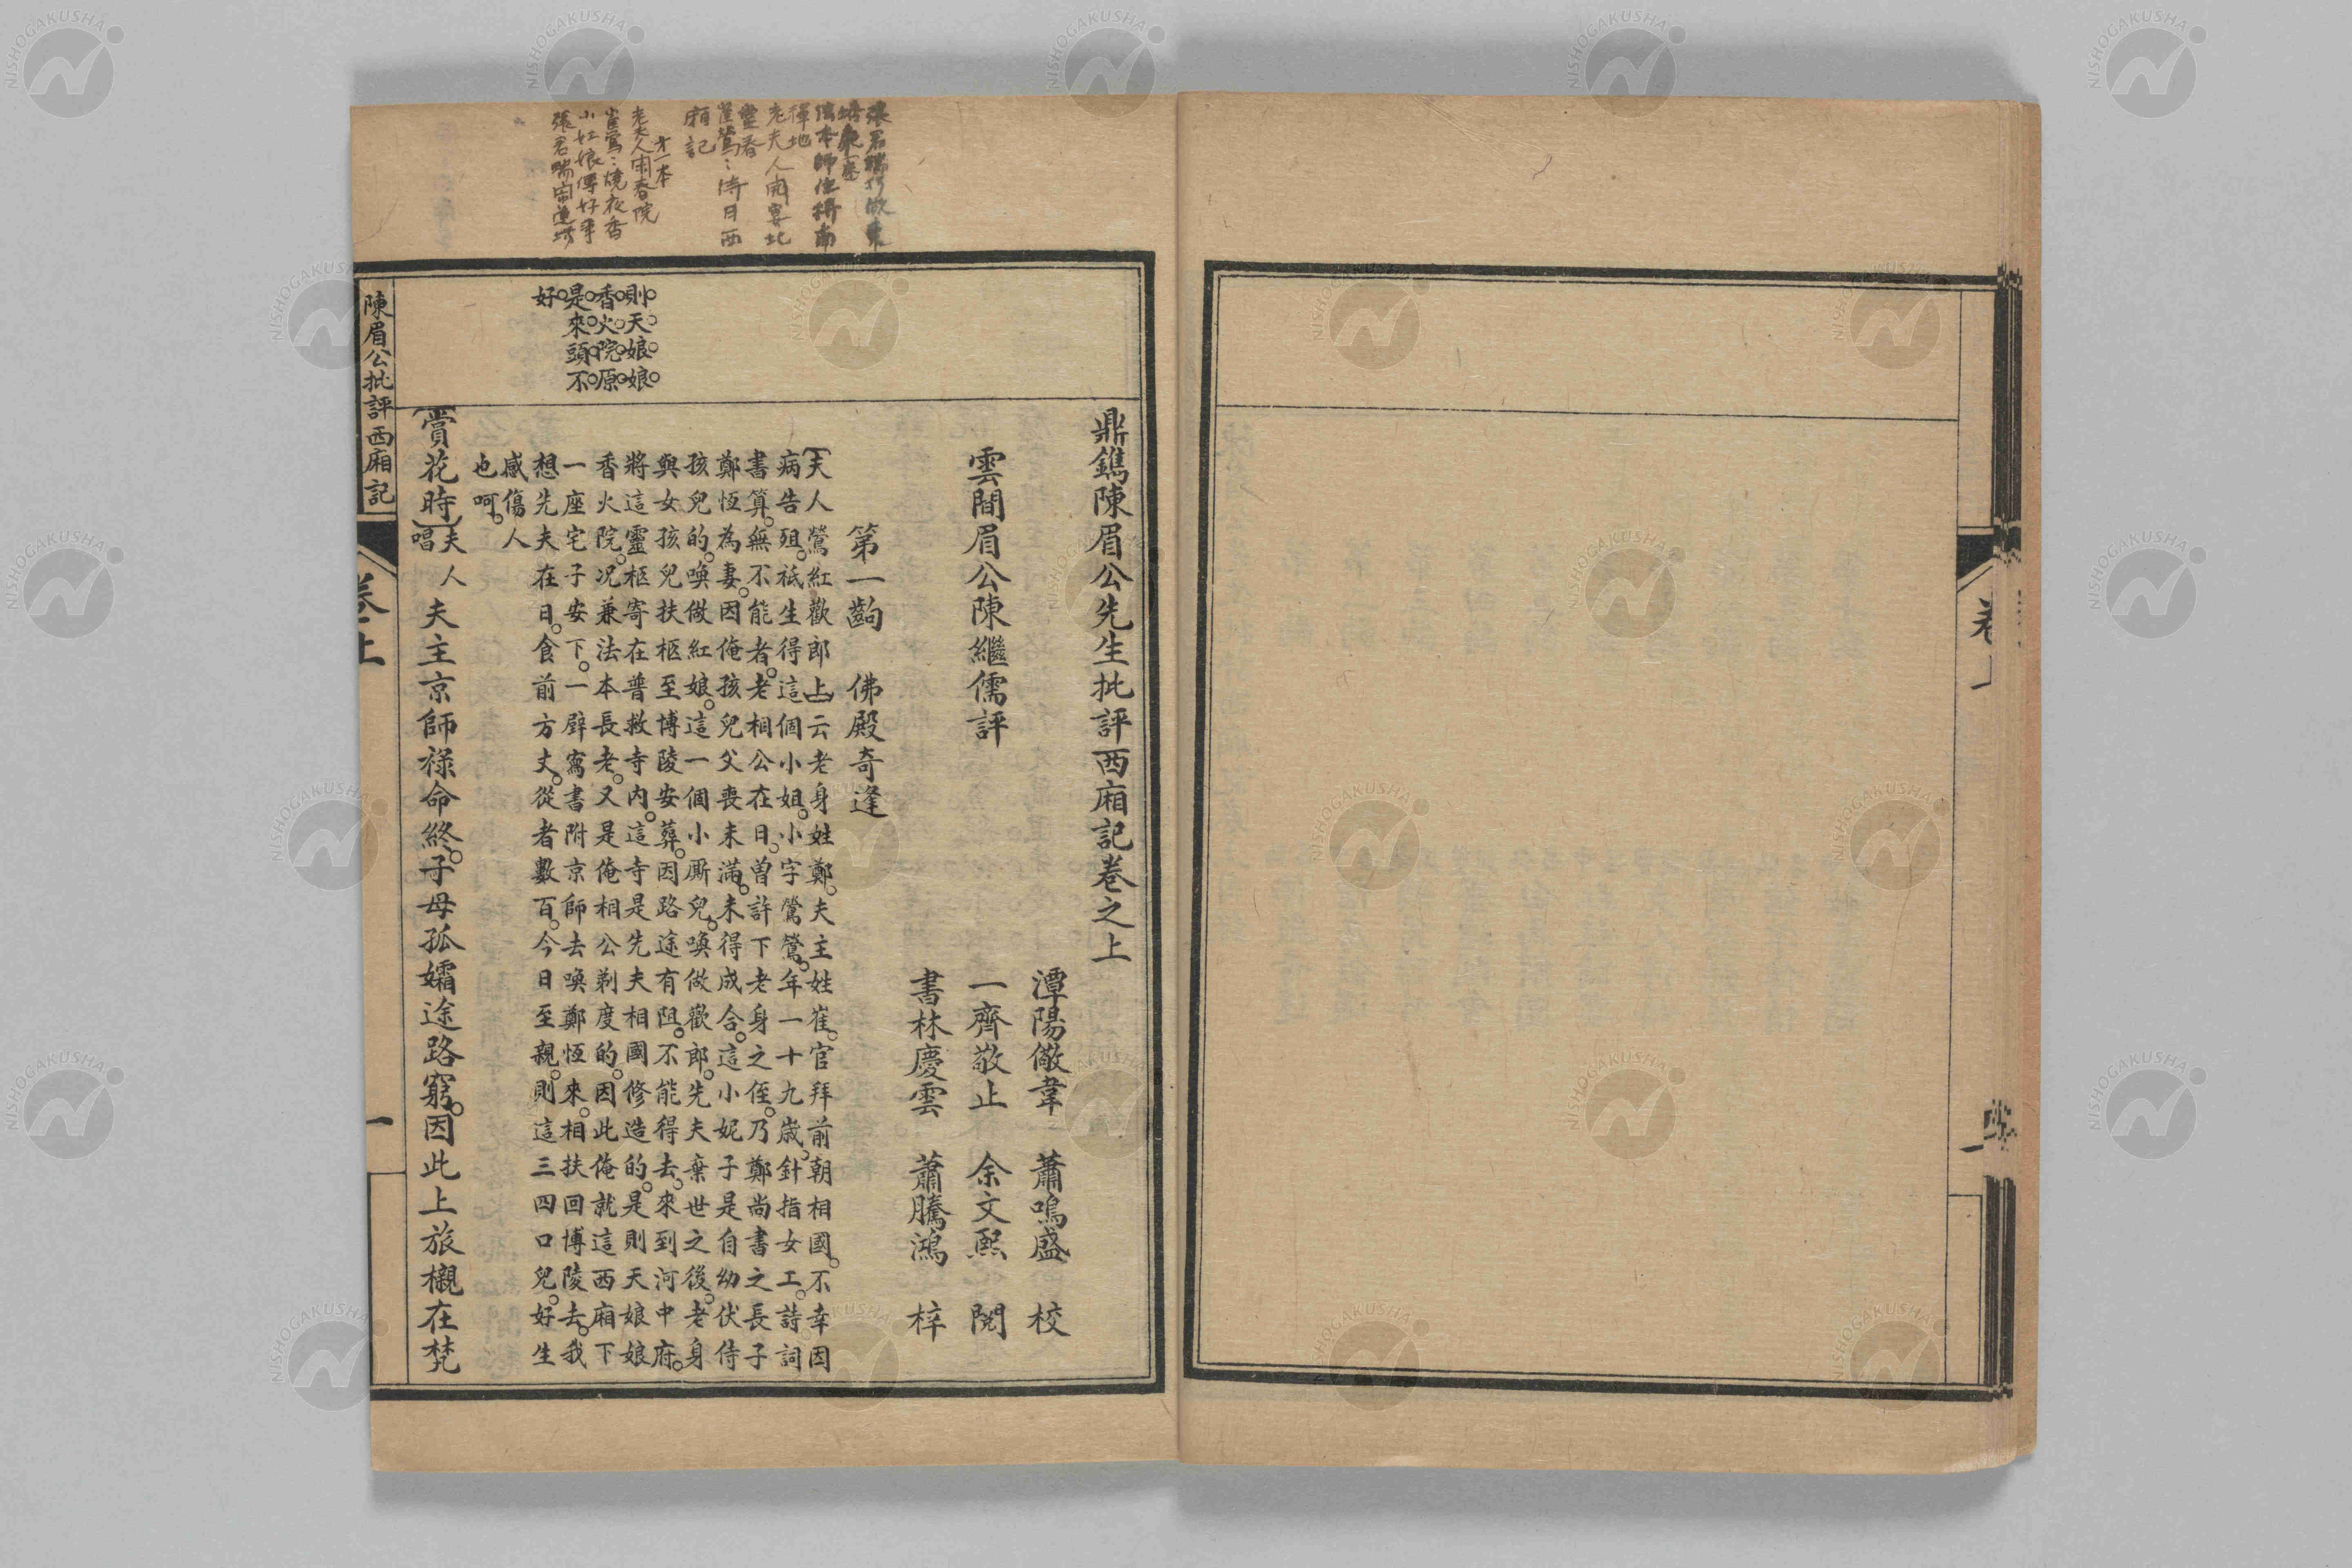 張君瑞巧做東
床婿
法本師住持南
禅地
老夫人開宴北
堂春
崔鶯〻待月西
廂記
才一本
老夫人閑春院
崔鶯〻燒夜香
小红娘傳好事
張君瑞閙道塲
則天娘娘
香火院原
是來頭不
好
鼎鐫陳眉公先生批評西廂記卷之上
潭陽儆韋 蕭鳴盛 校
雲間眉公陳繼儒評 一齋敬止 余文熙 閱
書林慶雲 蕭騰鴻 梓
第一齣 佛殿奇逢
〔夫人鶯紅歡郎上〕云老身姓鄭。夫主姓崔。官拜前朝相國。不幸因
病告殂。祗生得這個小姐。小字鶯鶯。年一十九歲。針指女工。詩詞
書算。無不能者。老相公在日。曽許下老身之侄。乃鄭尚書之長子
鄭恆為妻。因俺孩兒父喪未滿。未得成合。這小妮子是自幼伏侍
孩兒的。喚做紅娘。這一個小厮兒。喚做歡郎。先夫棄世之後。老身
與女孩兒扶柩至博陵安葬。因路途有阻。不能得去。來到河中府。
將這靈柩寄在普救寺內。這寺是先夫相國修造的。是則天娘娘
香火院。况兼法本長老。又是俺相公剃度的。因此俺就這西廂下
一座宅子安下。一壁寫書附京師去喚鄭恆來。相扶回博陵去。我
想先夫在日。食前方丈。從者數百。今日至親。則這三四口兒。好生
感傷人
也呵。
〔賞花時〕夫人唱 夫主京師禄命終。子母孤孀途路窮。因此上旅櫬在梵
陳眉公批評西廂記 卷上 一